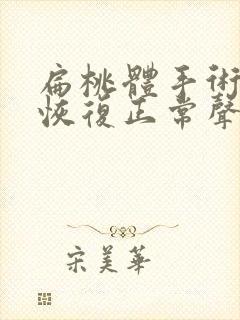 扁桃體手術
恢復正常聲
宋美華